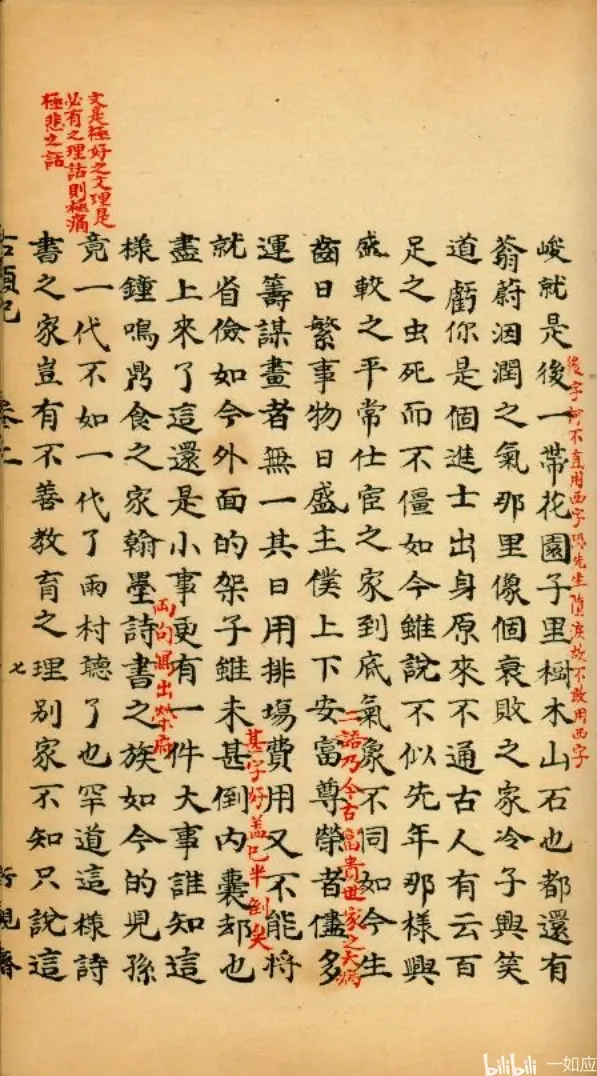 峻就是後一帶花園子里樹木山石也都還有
後字何不直用西字恐先生墮淚故不敢用西字
蓊蔚洇潤之氣那里像個衰敗之家冷子興笑
道虧你是個進士出身原來不通古人有云百
足之虫死而不僵如今雖說不似先年那樣興
盛較之平常仕宦之家到底氣象不同如今生
二語乃今古富貴世家之大病
齒日繁事物日盛主僕上下安富尊榮者儘多
運籌謀畫者無一其日用排塲費用又不能將
甚字好盖已半倒矣
就省儉如今外面的架子雖未甚倒內囊却也
盡上來了這還是小事更有一件大事誰知這
兩句寫出榮府
樣鐘鳴鼎食之家翰墨詩書之族如今的児孫
竟一代不如一代了雨村聽了也罕道這樣詩
書之家豈有不善教育之理別家不知只說這
文是極好之文理是
必有之理話則極痛
極悲之話
七
bilibili 一如应